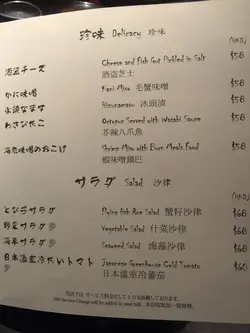 珍味 Delicacy 珍味
(HKD)
酒盗チーズ Cheese and Fish Gut Pickled in Salt $58
酒盗芝士
かに味噌 Kani Miso 毛蟹味噌 $58
氷頭なます Hizunamasu 氷頭漬 $58
わさびたこ Octopus Served with Wasabi Sauce $58
芥辣八爪魚
海老味噌のおこげ Shrimp Miso with Burn Meals Food $58
蝦味噌鍋巴
サラダ Salad 沙律
(HKD)
とび子サラダ Flying fish Roe Salad 蟹籽沙律 $68
野菜サラダ Vegetable Salad 什菜沙律 $60
海草サラダ Seaweed Salad 海藻沙律 $68
日本温室冷たいトマト Japanese Greenhouse Cold Tomato $60
日本温室冷番茄
10% Service Charge will be added to your bill.